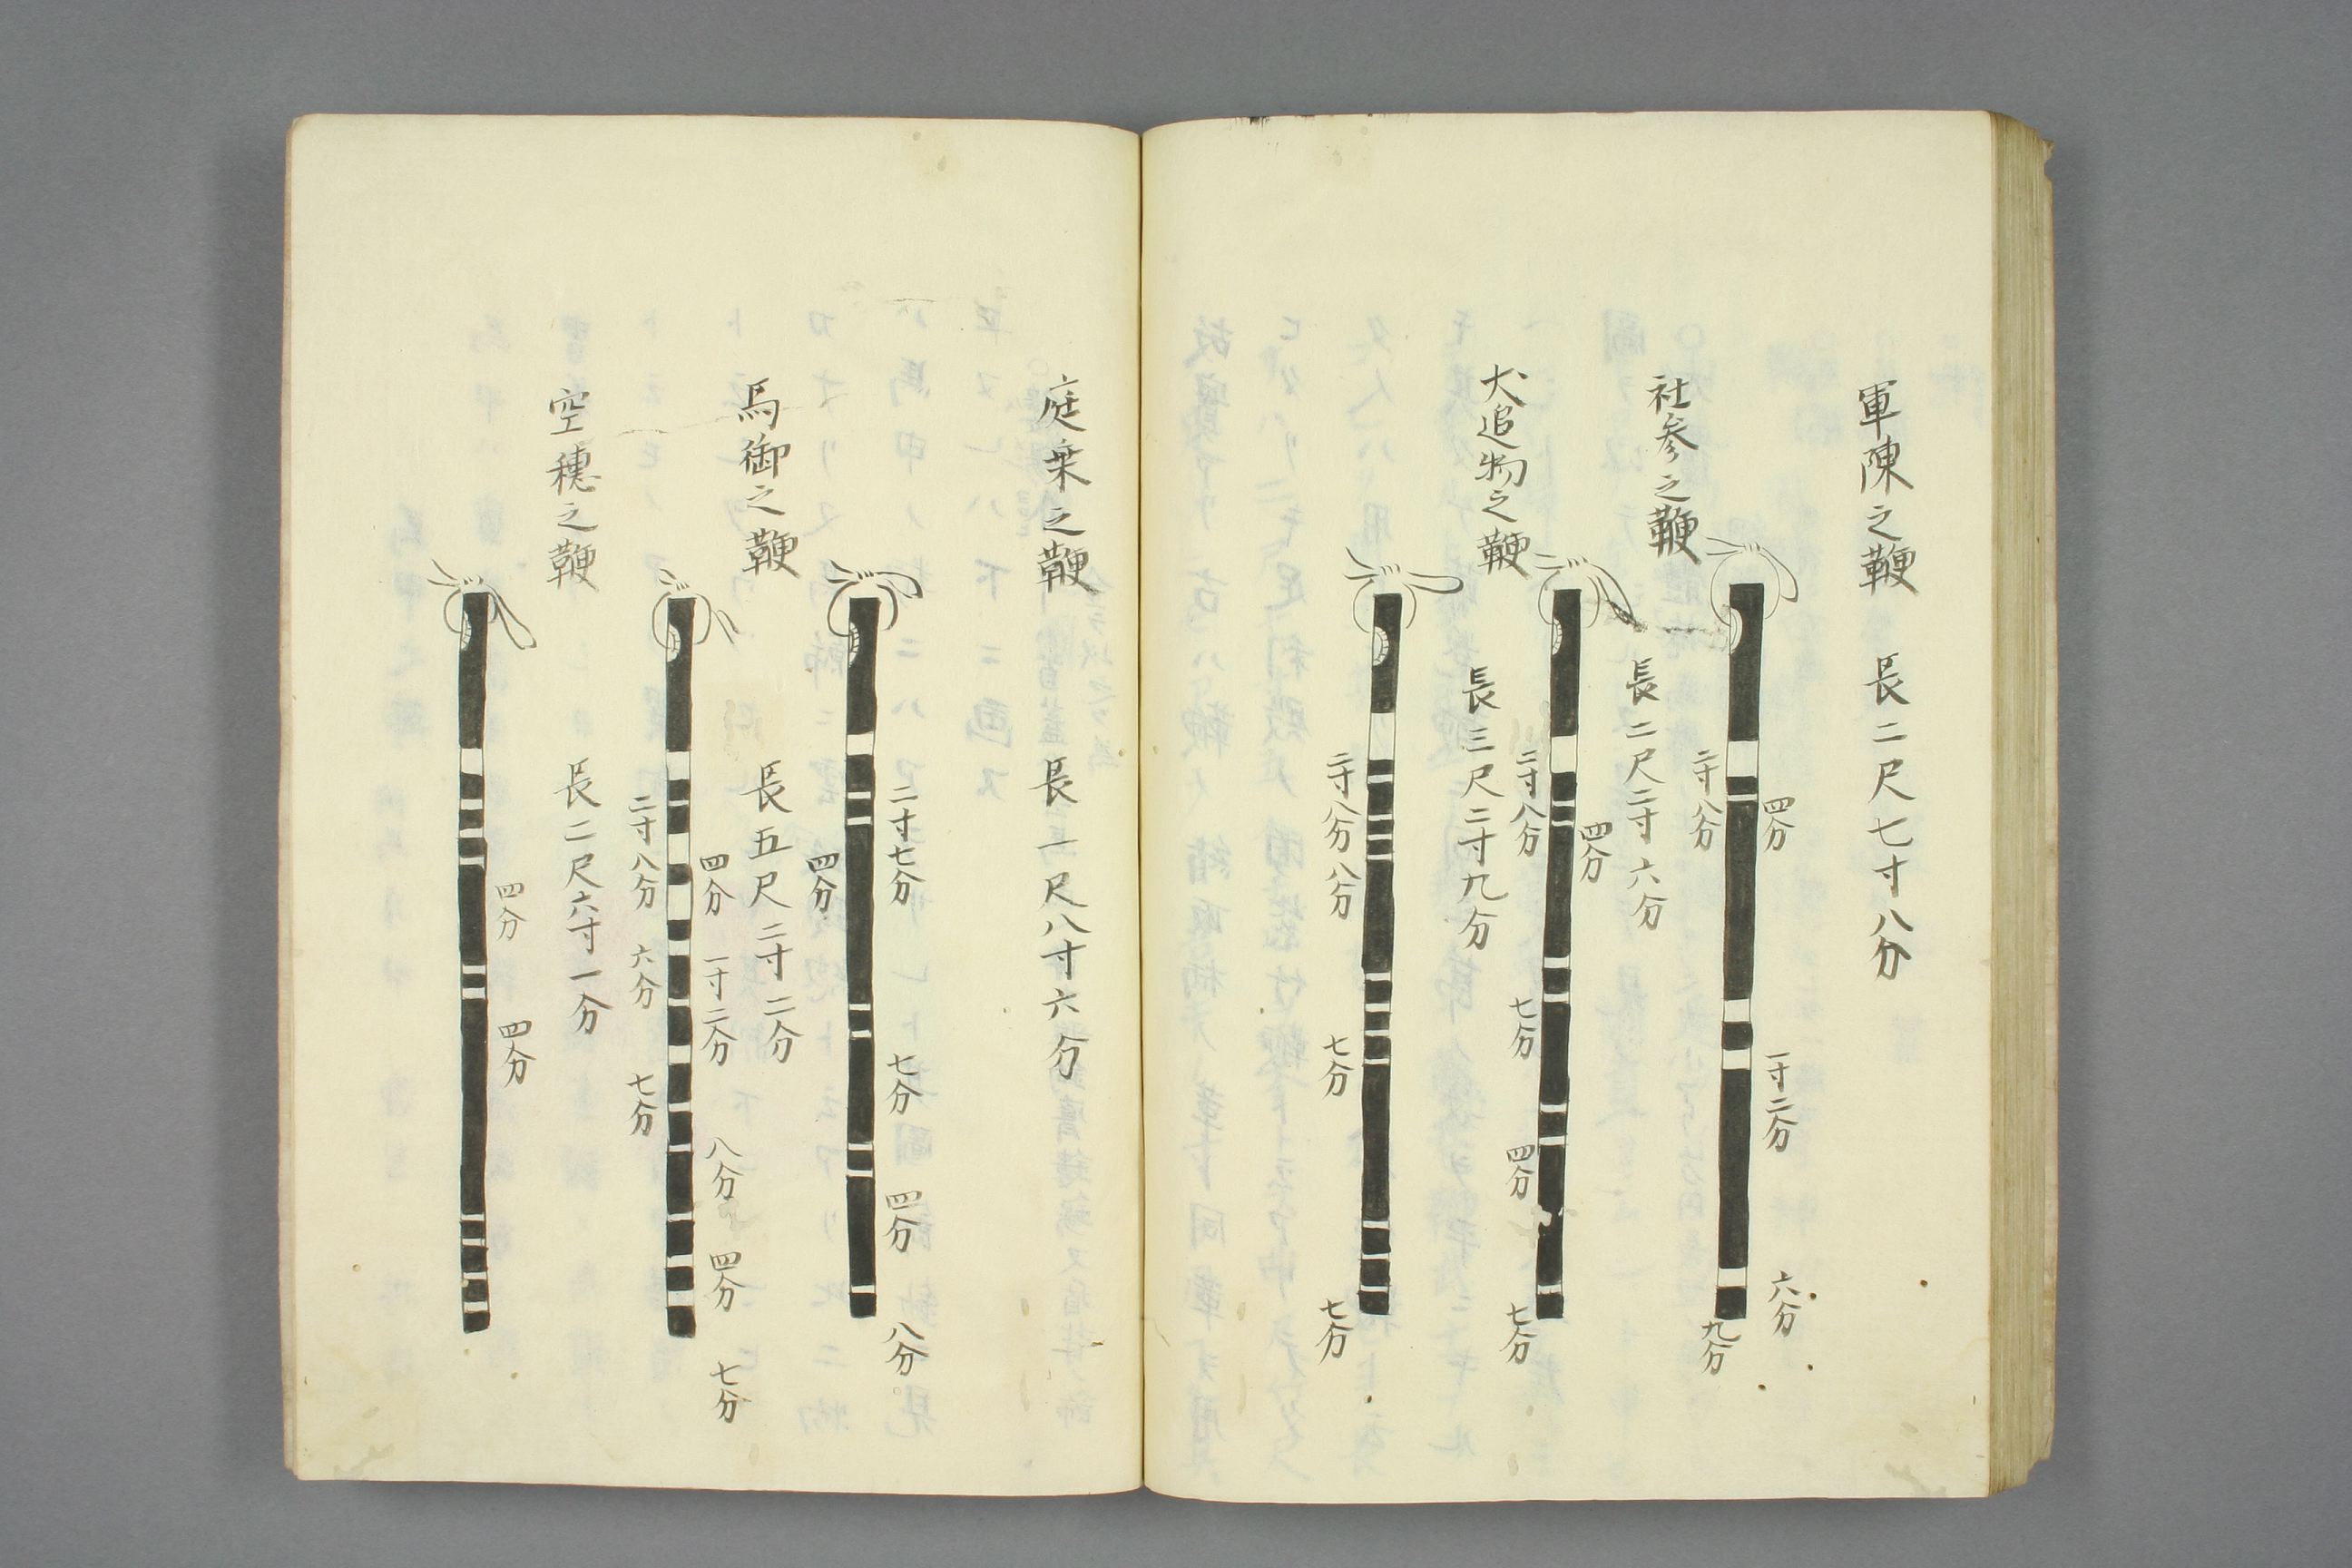 軍陳之鞭 長二尺七寸八分
四分
一寸二分
六分
二寸八分
九分
社参之鞭 長二尺二寸六分
四分
二寸八分
七分
四分
七分
犬追物之鞭 長三尺二寸九分
二寸八分
八分
七分
七分
庭乗之鞭 長一尺八寸六分
二寸七分
七分
四分
八分
四分
馬御之鞭 長五尺二寸二分
四分
一寸二分
八分
四分
七分
二寸八分
六分
七分
空穂之鞭 長二尺六寸一分
四分
四分